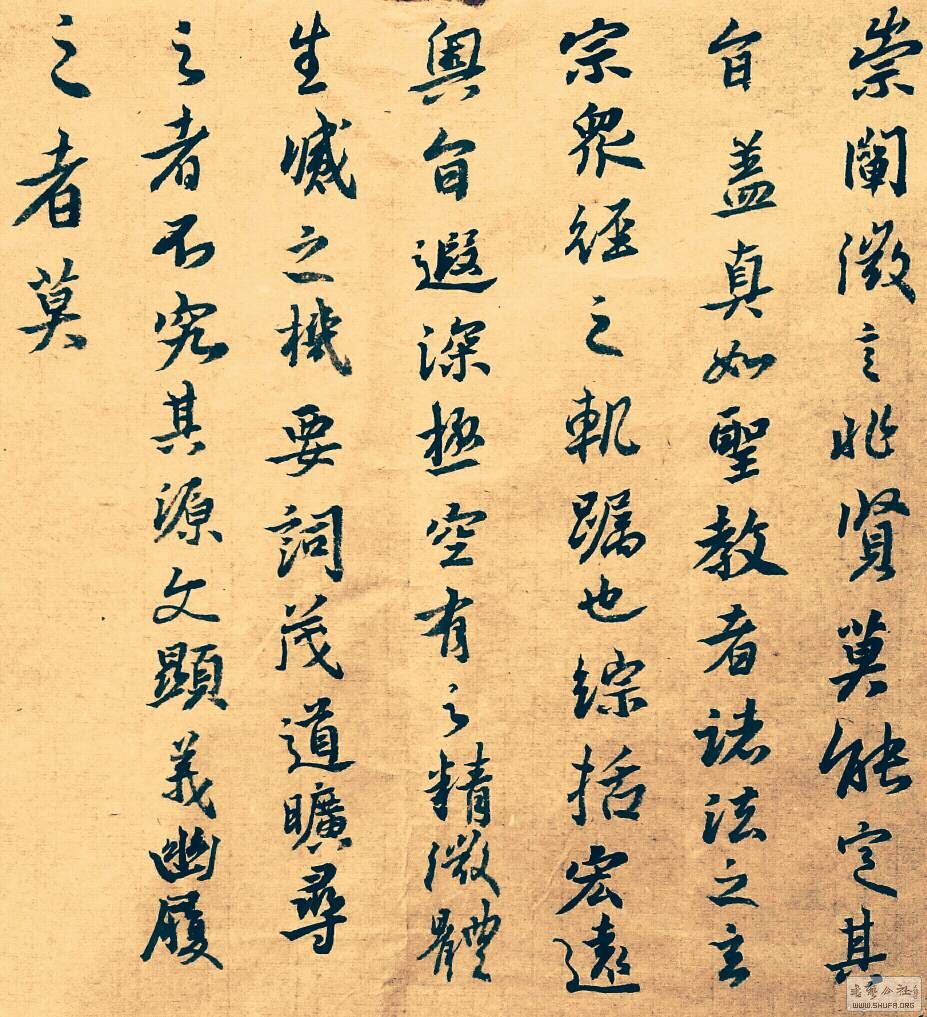 崇闡微言非賢莫能定其
旨盖真如聖教者諸法之玄
宗眾經之軌躅也綜括宏遠
奧旨遐深極空有之精微體
生滅之機要詞茂道曠尋
之者不究其源文顯義幽履
之者莫
書藝公社
WWW.SHUFA.ORG